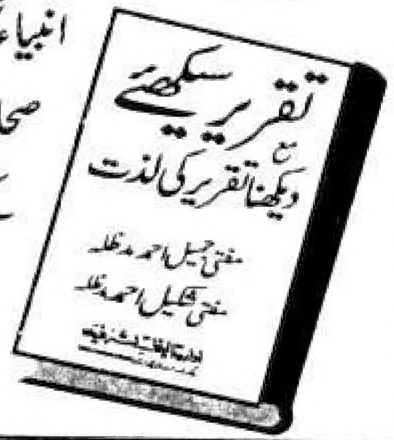 انبیاء
تقریر سیکھئے
مع
دیکھنا تقریر کی لذت
مفتی جمیل احمد مدظلہ
مفتی شکیل احمد مدظلہ
ادارہ تالیفات اشرفیہ